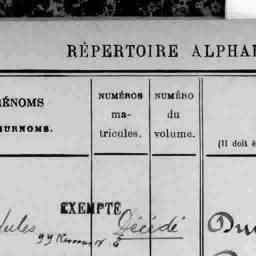 RÉPERTOIRE ALPHA
RÉNOMS
SURNOMS.
NUMÉROS
ma-
tricules.
NUMÉRO
du
volume.
(Il doit ê
EXEMPTÉ
Jules
Décédé